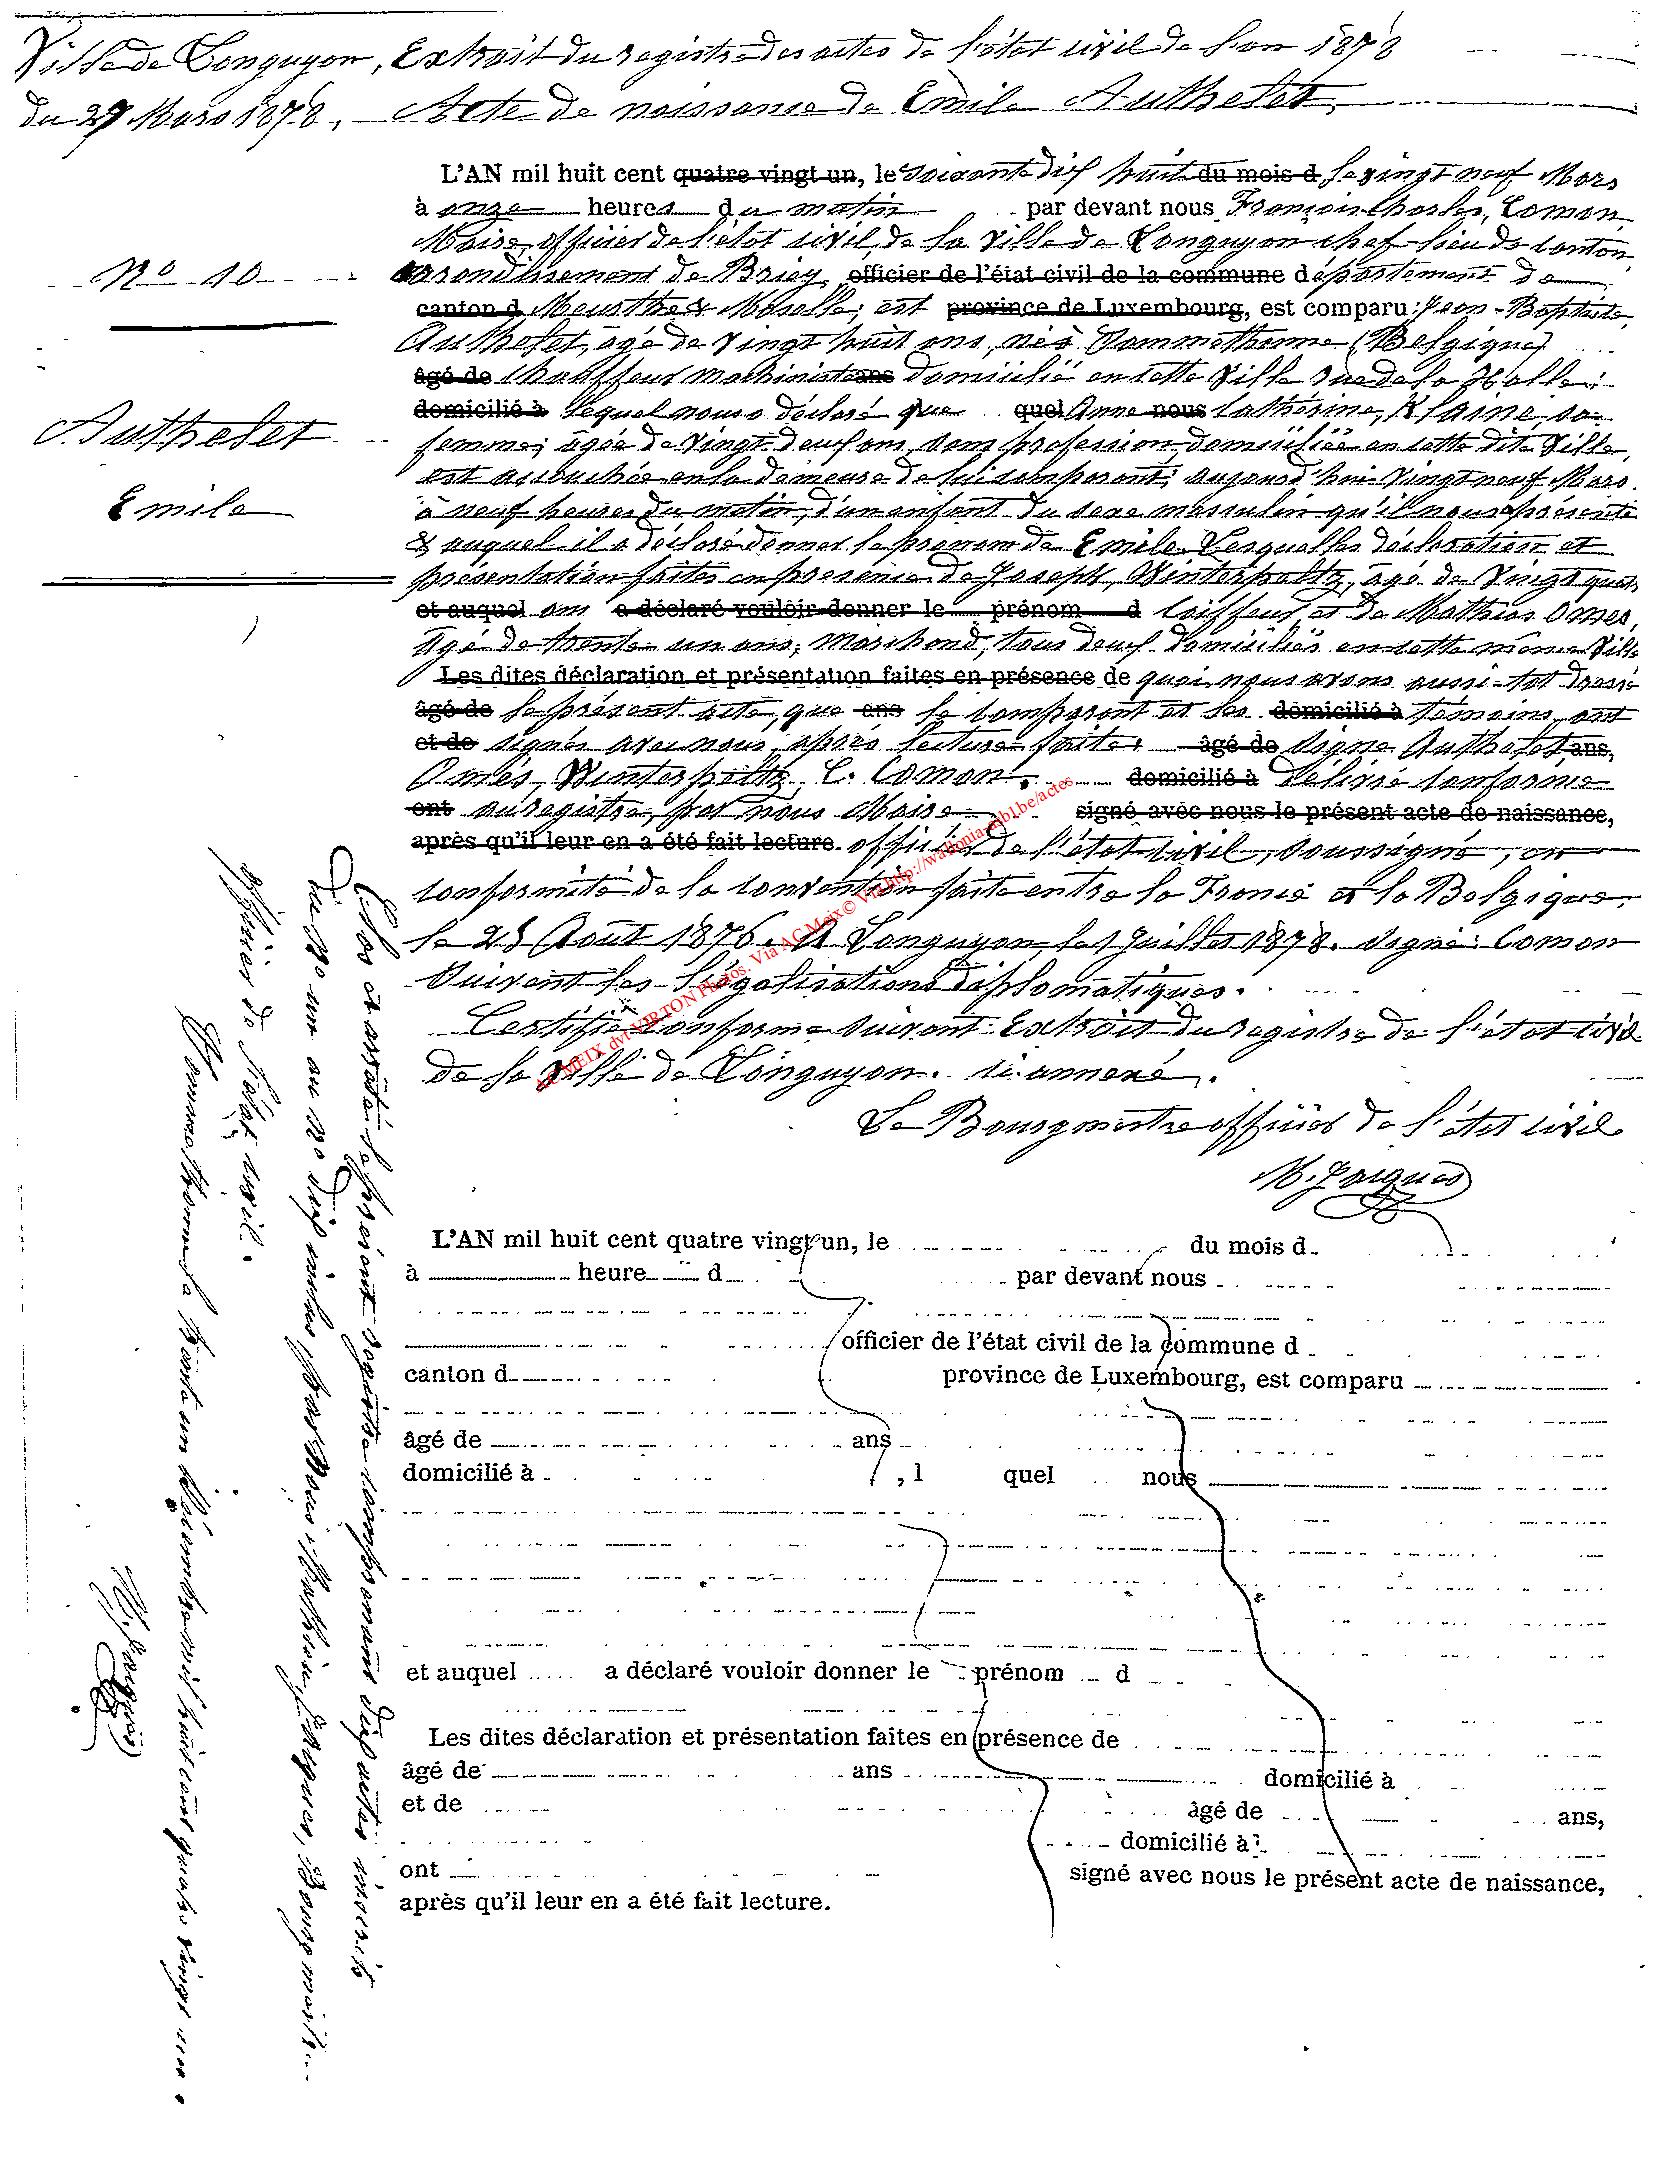 Ville de Longuyon, Extrait du registre des actes de l'état civil de l'an 1878
du 29 Mars 1878, Acte de naissance de Emile Authelet,
L'AN mil huit cent quatre vingt un, le soixante dix huit du mois d le vingt neuf Mars
à onze heures du matin par devant nous François Charles, Comon,
Maire, officier de l'état civil, de la Ville de Longuyon chef lieu de canton,
N° 10
arrondissement de Briey, officier de l'état civil de la commune département de
canton d Meurthe & Moselle, est province de Luxembourg, est comparu: Jean-Baptiste,
Authelet, âgé de vingt huit ans, né à Sommethonne (Belgique)
âgé de chauffeur machiniste ans domicilié en cette Ville rue de la Halle:
domicilié à lequel nous a déclaré que quel Anne nous Cathérine, Klaine, sa
Authelet
femme, âgée de vingt-deux ans, sans profession, domiciliée en cette dite Ville,
est accouchée en la demeure de lui comparant, aujourd'hui vingt neuf Mars.
Emile
à neuf heures du matin, d'un enfant du sexe masculin qu'il nous a présenté
& auquel il a déclaré donner le prénom de Emile. Lesquelles déclaration et
présentation faites en présence de Joseph, Winterholtz, âgé de vingt quatre
et auquel ans a déclaré vouloir donner le prénom d coiffeur, et de Mathias Omes,
âgé de trente un ans, Marchand, tous deux domiciliés en cette même Ville
Les dites déclaration et présentation faites en présence de quoi nous avons aussi-tot dressé
âgé de le présent acte, que ans le comparant et les domicilié à témoins, ont
et de signés avec nous, après lecture faite: âgé de Signé Authelet, ans,
Omes, Winterholtz, C. Comon. domicilié à Délivré conforme
ont au registre, par nous Maire signé avec nous le présent acte de naissance,
après qu'il leur en a été fait lecture. officier de l'état civil, soussigné, en
conformité de la convention faite entre la France et la Belgique.
le 25 Août 1876. A Longuyon, le 1 Juillet 1878. signé: Comon
Suivent les légalisations diplomatiques.
Certifié conforme suivant Extrait du registre de l'état civil
de la Ville de Longuyon. ci annexé.
Le Bourgmestre officier de l'état civil
M. Jacques
AC MEIX dvt VIRTON Photos. Via AC Meix © Via http://wallonia.mbl.be/actes
Clos et arrêté le présent registre comprenant dix actes inscrits
du N° un au N° dix inclus, par Nous Mathieu Jacques, Bourgmestre
officier de l'état civil.
Sommethonne le trente un Décembre mil huit cent quatre vingt un.
M. Jacques
L'AN mil huit cent quatre vingt un, le du mois d
à heure d par devant nous
officier de l'état civil de la commune d
canton d province de Luxembourg, est comparu
âgé de ans
domicilié à , l quel nous
et auquel a déclaré vouloir donner le prénom d
Les dites déclaration et présentation faites en présence de
âgé de ans domicilié à
et de âgé de ans,
domicilié à
ont signé avec nous le présent acte de naissance,
après qu'il leur en a été fait lecture.